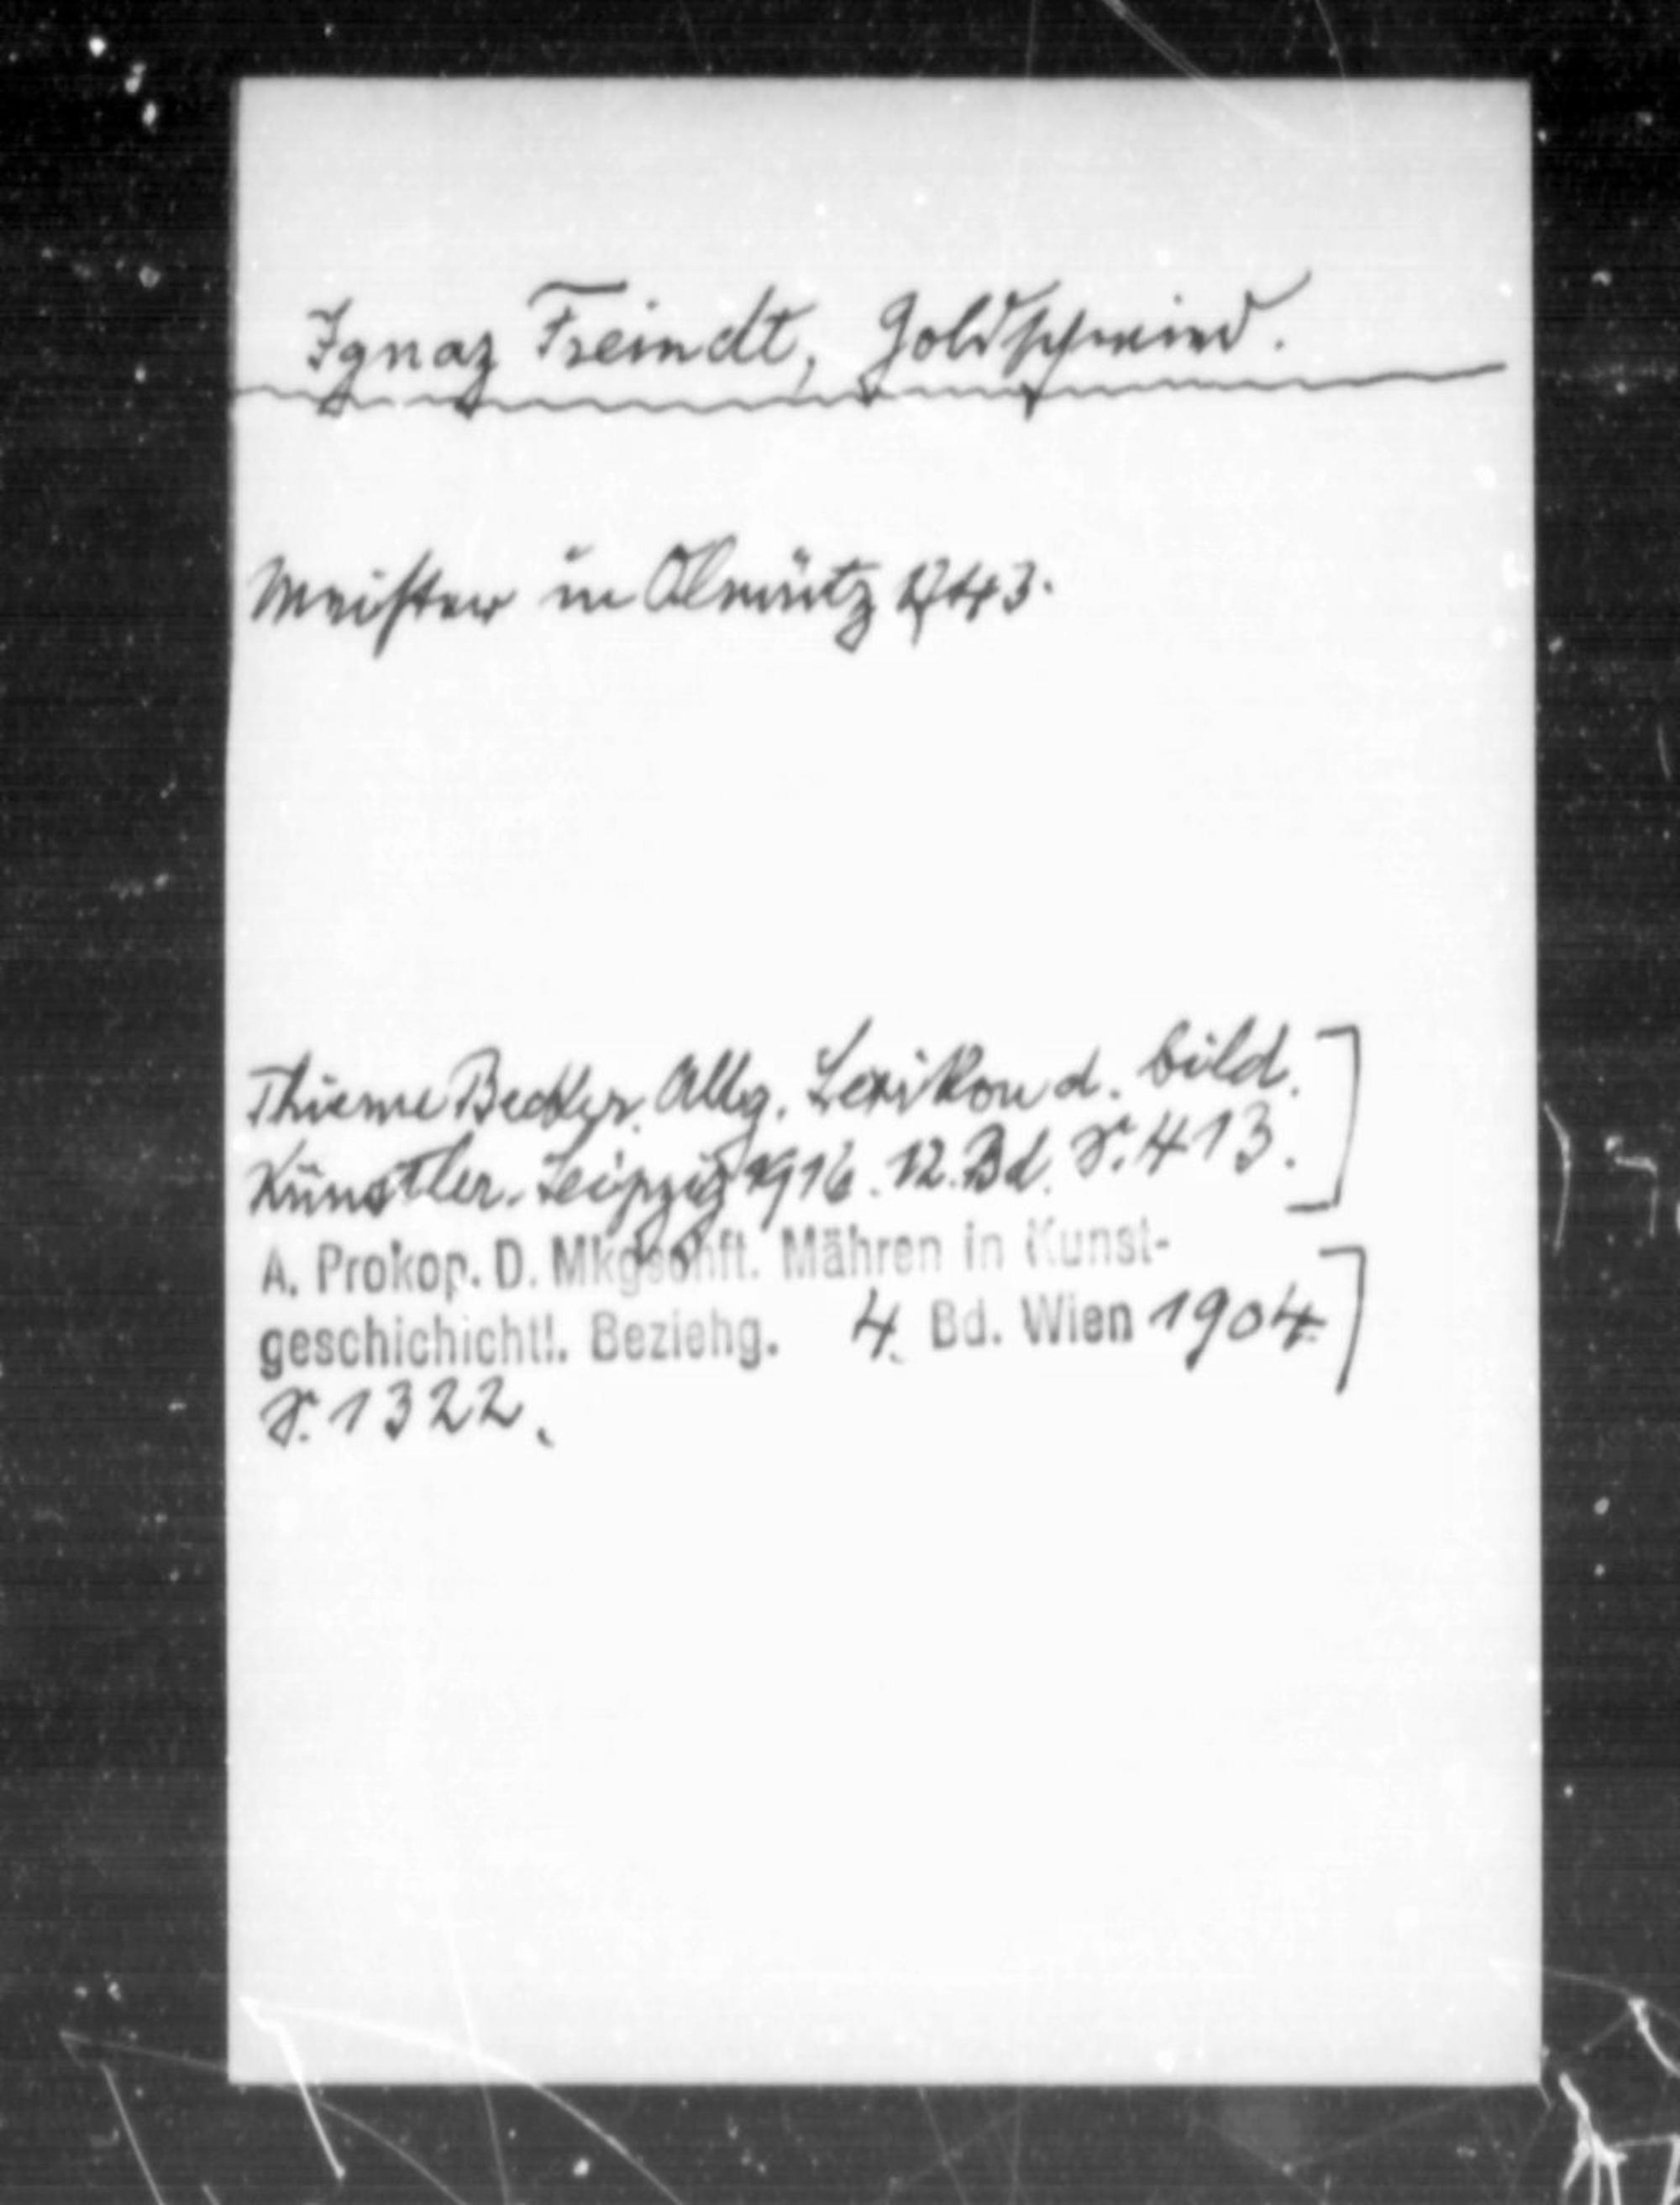 Ignaz Freindt, Goldschmied.
Meister in Olmütz 1743.
Thieme Becker. Allg. Lexikon d. bild.
Künstler. Leipzig 1916. 12. Bd. S. 413.]
A. Prokop. D. Mkgschft. Mähren in Kunst-
geschichichtl. Beziehg. 4. Bd. Wien 1904.]
S. 1322.